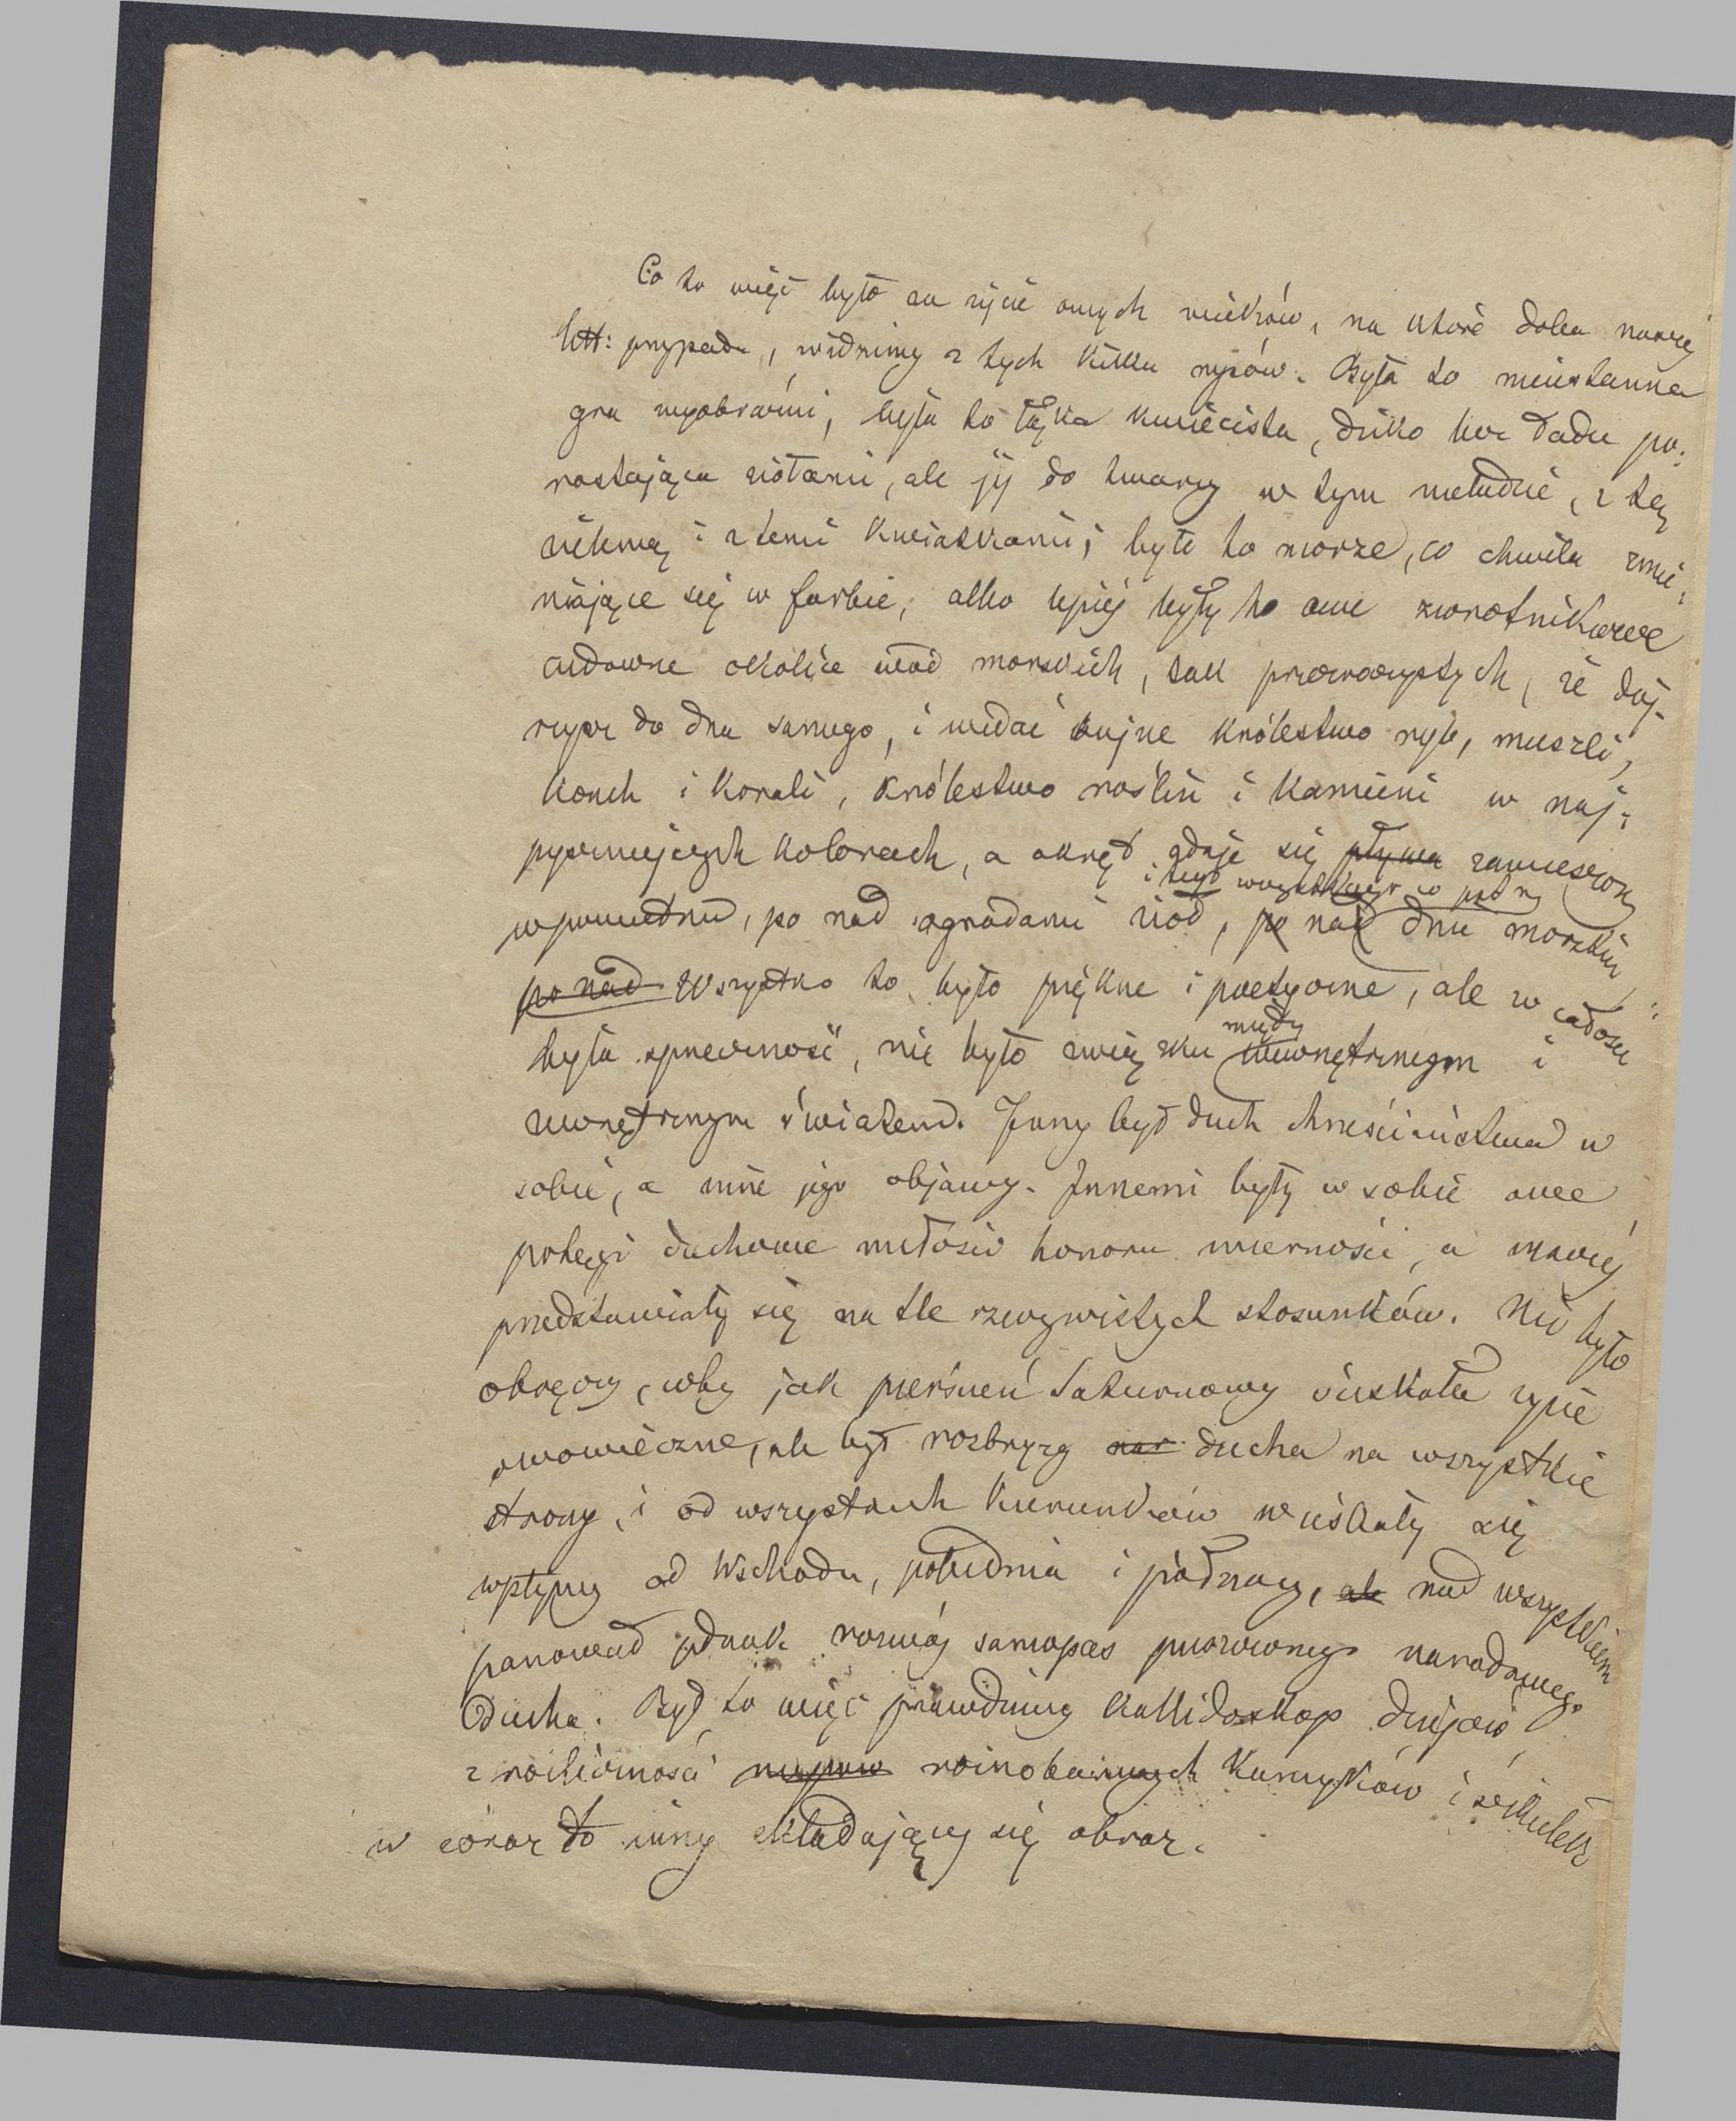 Co to więc było za życie owych wieków, na które doba naszej
litt: przypada, widzimy z tych kilku rysów. Była to nieustanna
gra wyobraźni, była to łąka kwiecista, dziko bez ładu po-
rastająca ziołami, ale jéj do twarzy w tym nieładzie, z tą
zielenią i z temi kwiatkami; było to morze, co chwila zmie-
niające się w farbie, albo lepiéj były to owe zwrotnikowe
cudowne okolice wód morskich, tak przezroczystych, że doj-
rzysz do dna samego, i widać bujne królestwo ryb, muszli,
konch i korali, królestwo roślin i kamieni w naj-
pyszniejszych kolorach, a okręt zdaje się pływa zawieszony
i tego wszystkiego w
w powietrzu, po nad ogrodami ziół, po nad dnie morskim
po nad Wszystko to było piękne i poetyczne, ale w całości
między
była sprzeczność, nie było związku wewnętrznym i
zewnętrznym światem. Inny był duch chrześciaństwa w
sobie, a inne jego objawy. Innemi były w sobie owe
potęgi duchowe miłości honoru wierności, a inaczéj
przedstawiały się na tle rzeczywistych stosunków. Nie było
obręczy, coby jak pierścień Saturnowy ściskała życie
owowieczne, ale był rozbryzg ducha na wszystkie
strony, i od wszystkich kierunków wciskały się
wpływy od Wschodu, południa i północy, ale nad wszystkiem
panował jednak rozwój samopas puszczonego narodowego
Ducha. Był to więc prawdziwy kallidoskop dziejów
z rozliczności różnobarwnych kamyków i szkiełek
w coraz to inny składający się obraz.